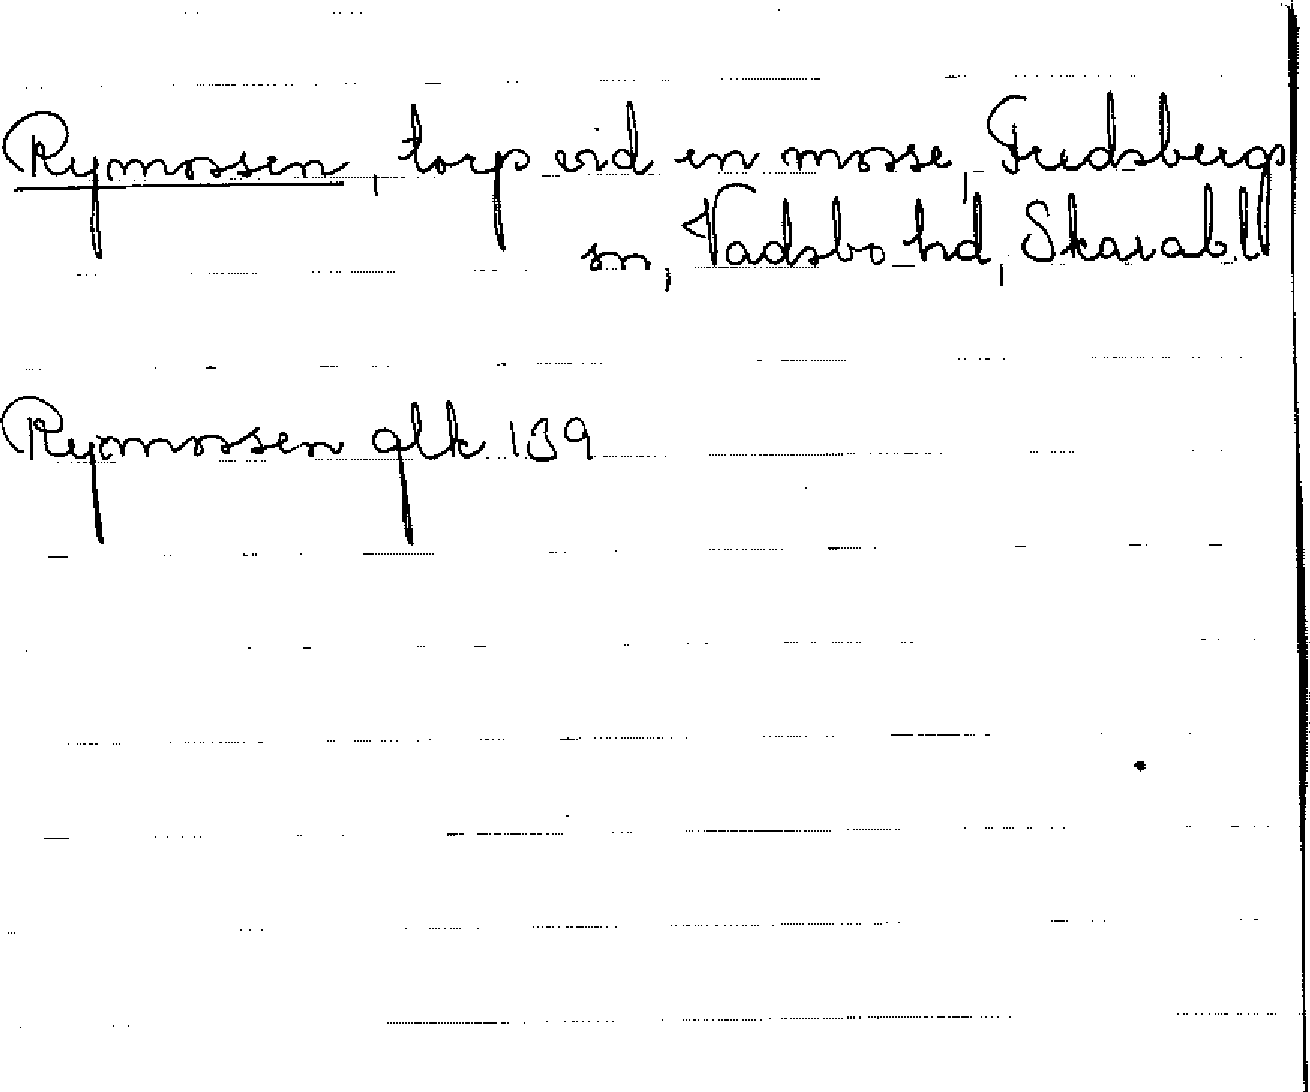 Rymossen, torp vid en mosse, Fredsbergs
sn, Vadsbo hd, Skarab.ll
Rymossen glk 139